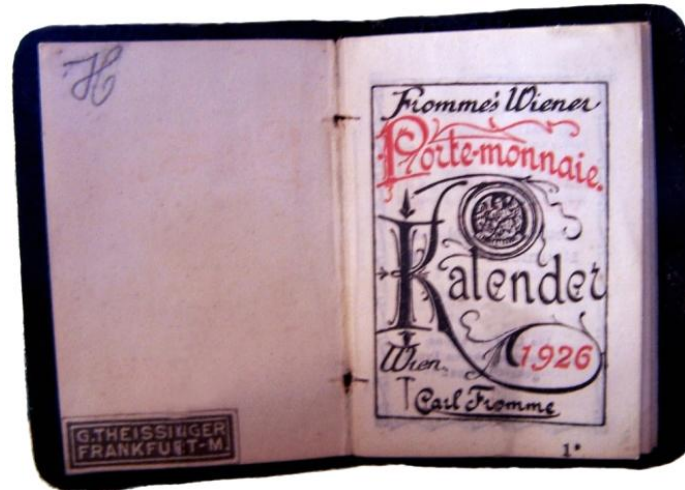 H
G. THEISSINGER
FRANKFURT-M.
Fromme's Wiener
Porte-monnaie.
Kalender
Wien. 1926
Carl Fromme
1*